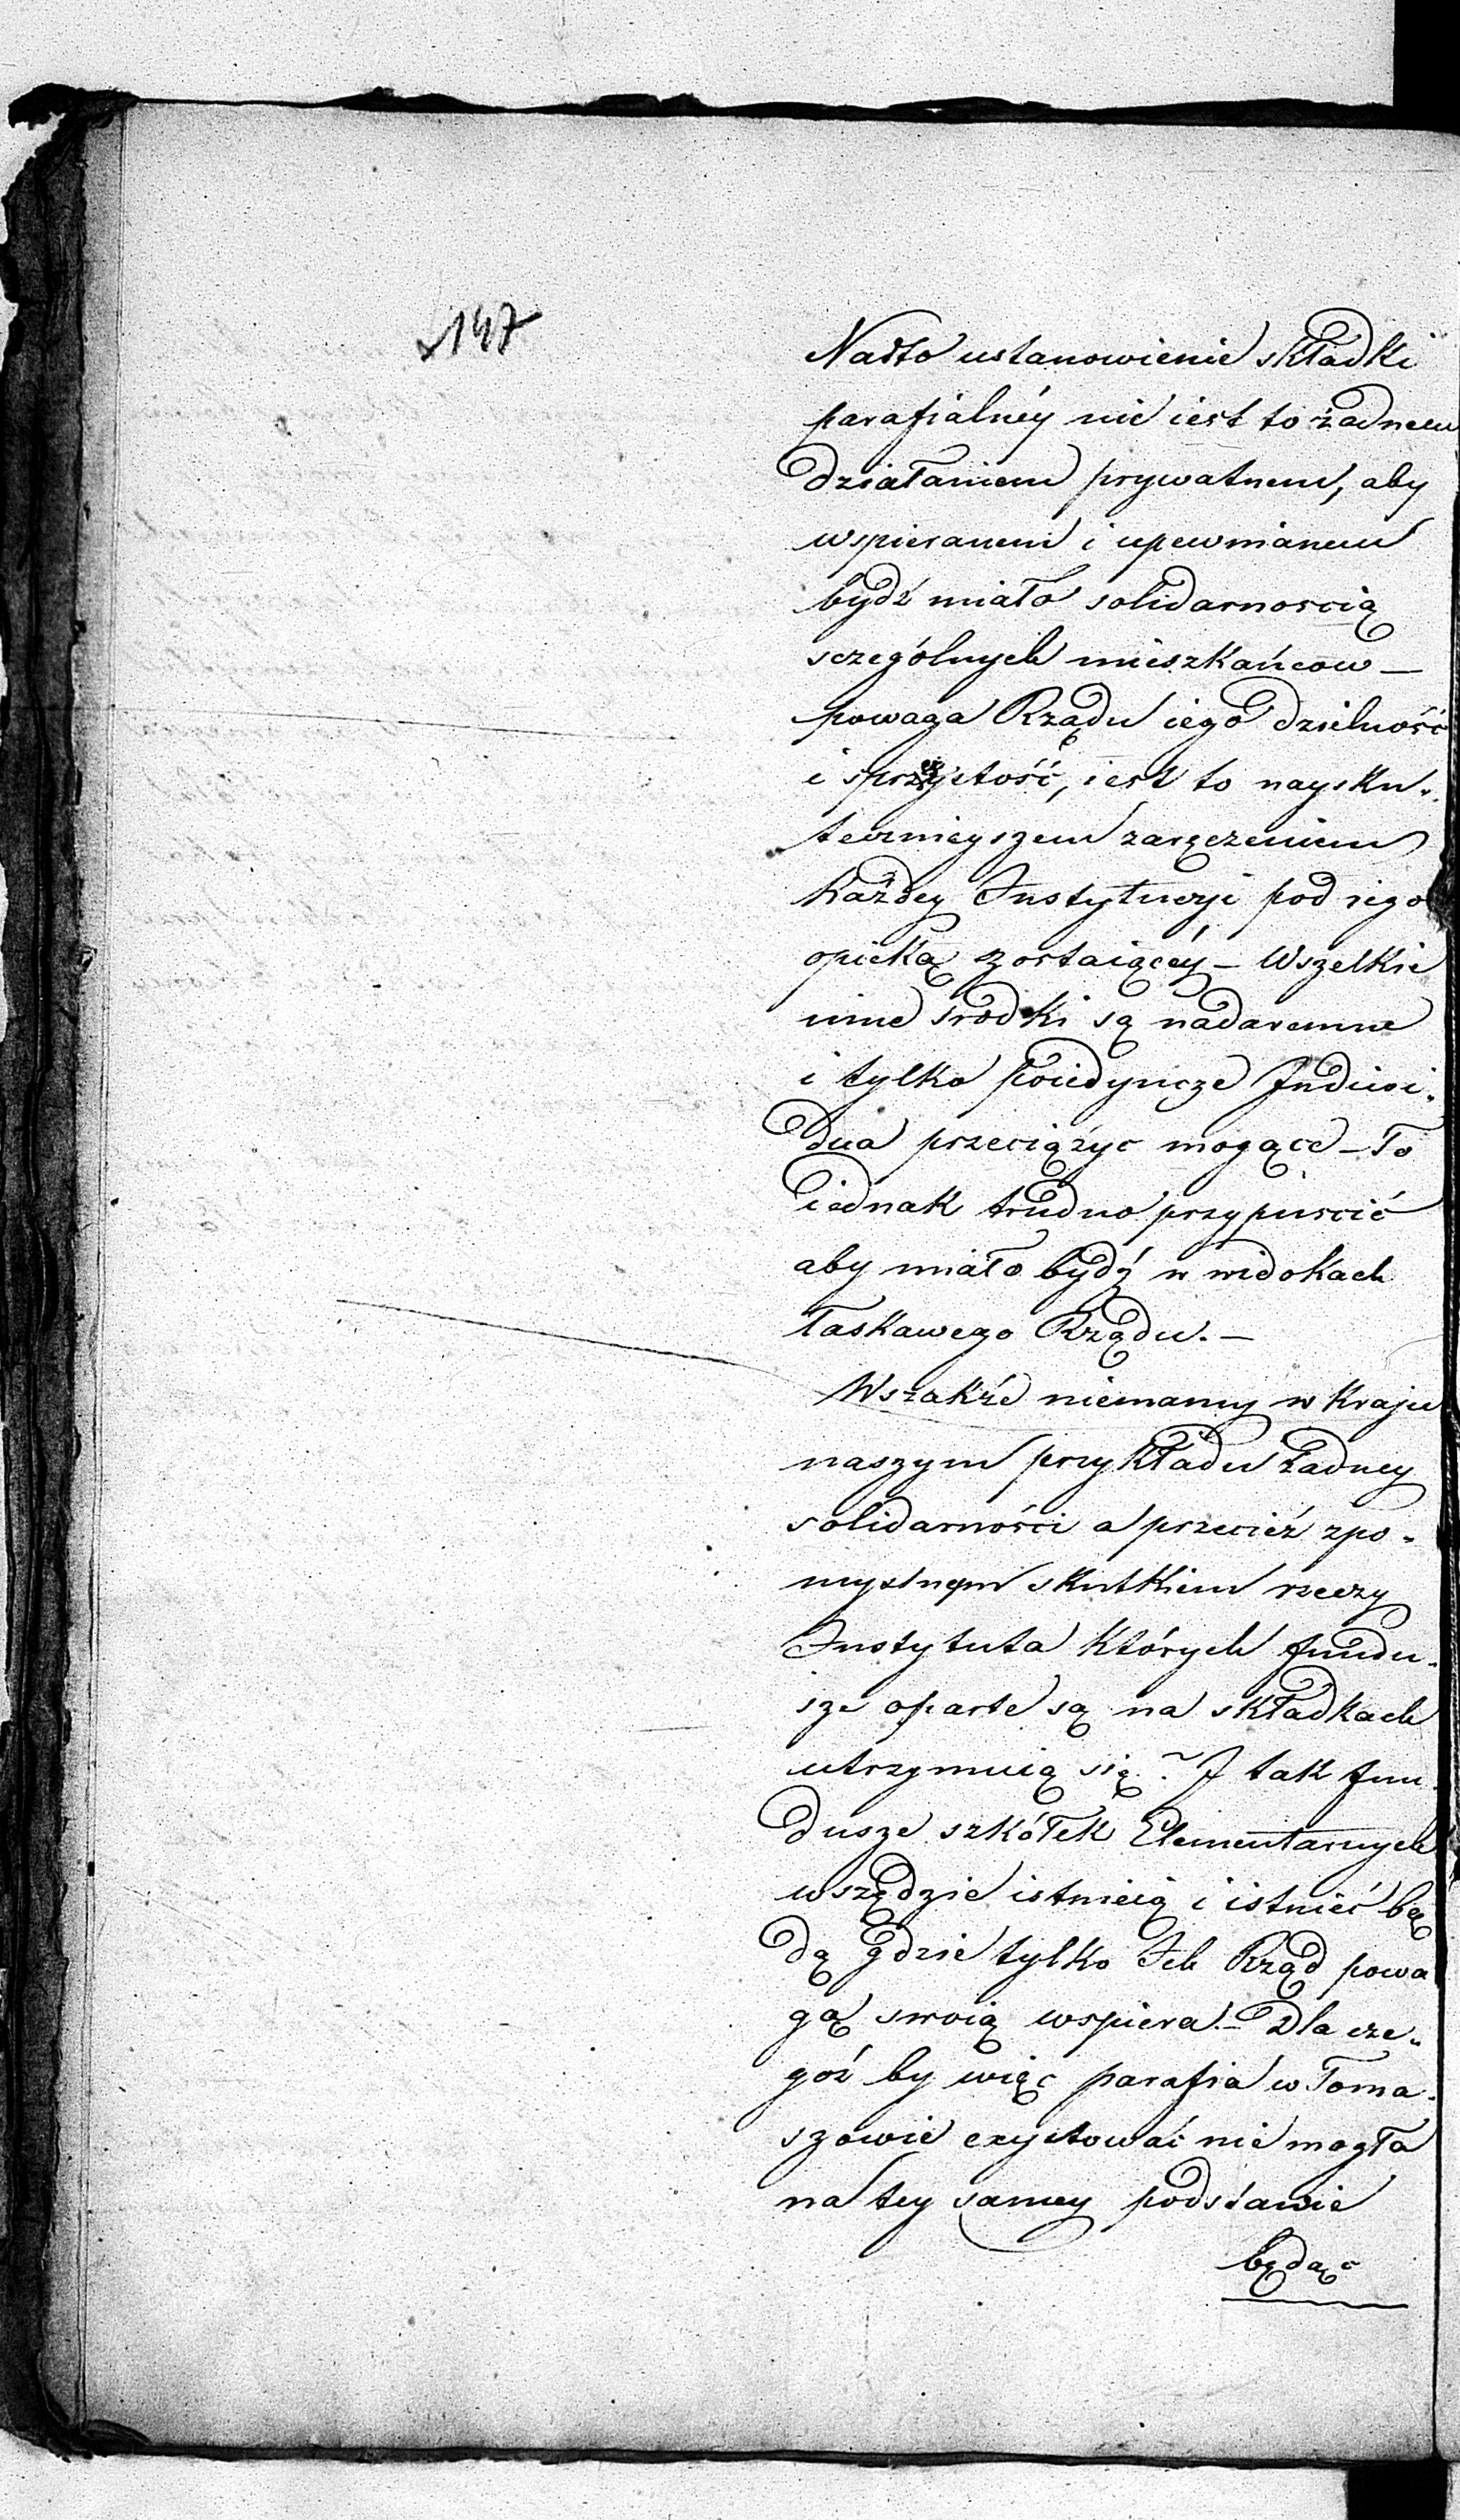 147
Nadto ustanowienie składki
parafialnéy nie iest to żadnem
działaniem prywatnem, aby
wspieranem i upewnianem
bydź miało solidarnoscią
sczególnych mieszkańcow —
powaga Rządu iego dzielność
i sprężystość, iest to naysku-
tecznieyszem zaręczeniem
każdey Instytucyi pod iego
opieką zostaiącéy — Wszelkie
inne srodki są nadaremne
i tylko poiedyncze Indiwi-
dua przeciążyc mogące — To
iednak trudno przypuscić
aby miało bydź w widokach
łaskawego Rządu. —
Wszakże niemamy w Kraju
naszym przykładu żadney
solidarności a przecież zpo-
myslnym skutkiem rzeczy
Instytuta których fundu-
sze oparte są na składkach
utrzymuią się? I tak fun-
dusze szkółek Elementarnych
wszędzie istnieią i istnieć bę
dą gdzie tylko Ich Rząd powa
gą swoią wspiera. — Dla cze-
góż by więc parafia w Toma-
szowie exystować nie mogła
na tey samey podstawie
będąc